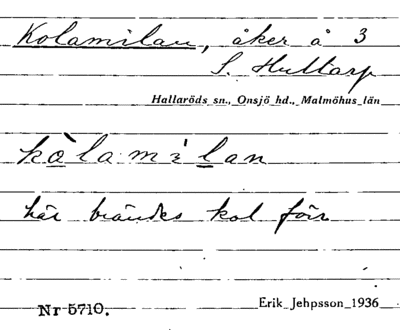 Kolamilan, åker å 3
S. Hultarp
Hallaröds sn., Onsjö hd., Malmöhus län
här brändes kol förr
Nr 5710.
Erik Jehpsson 1936